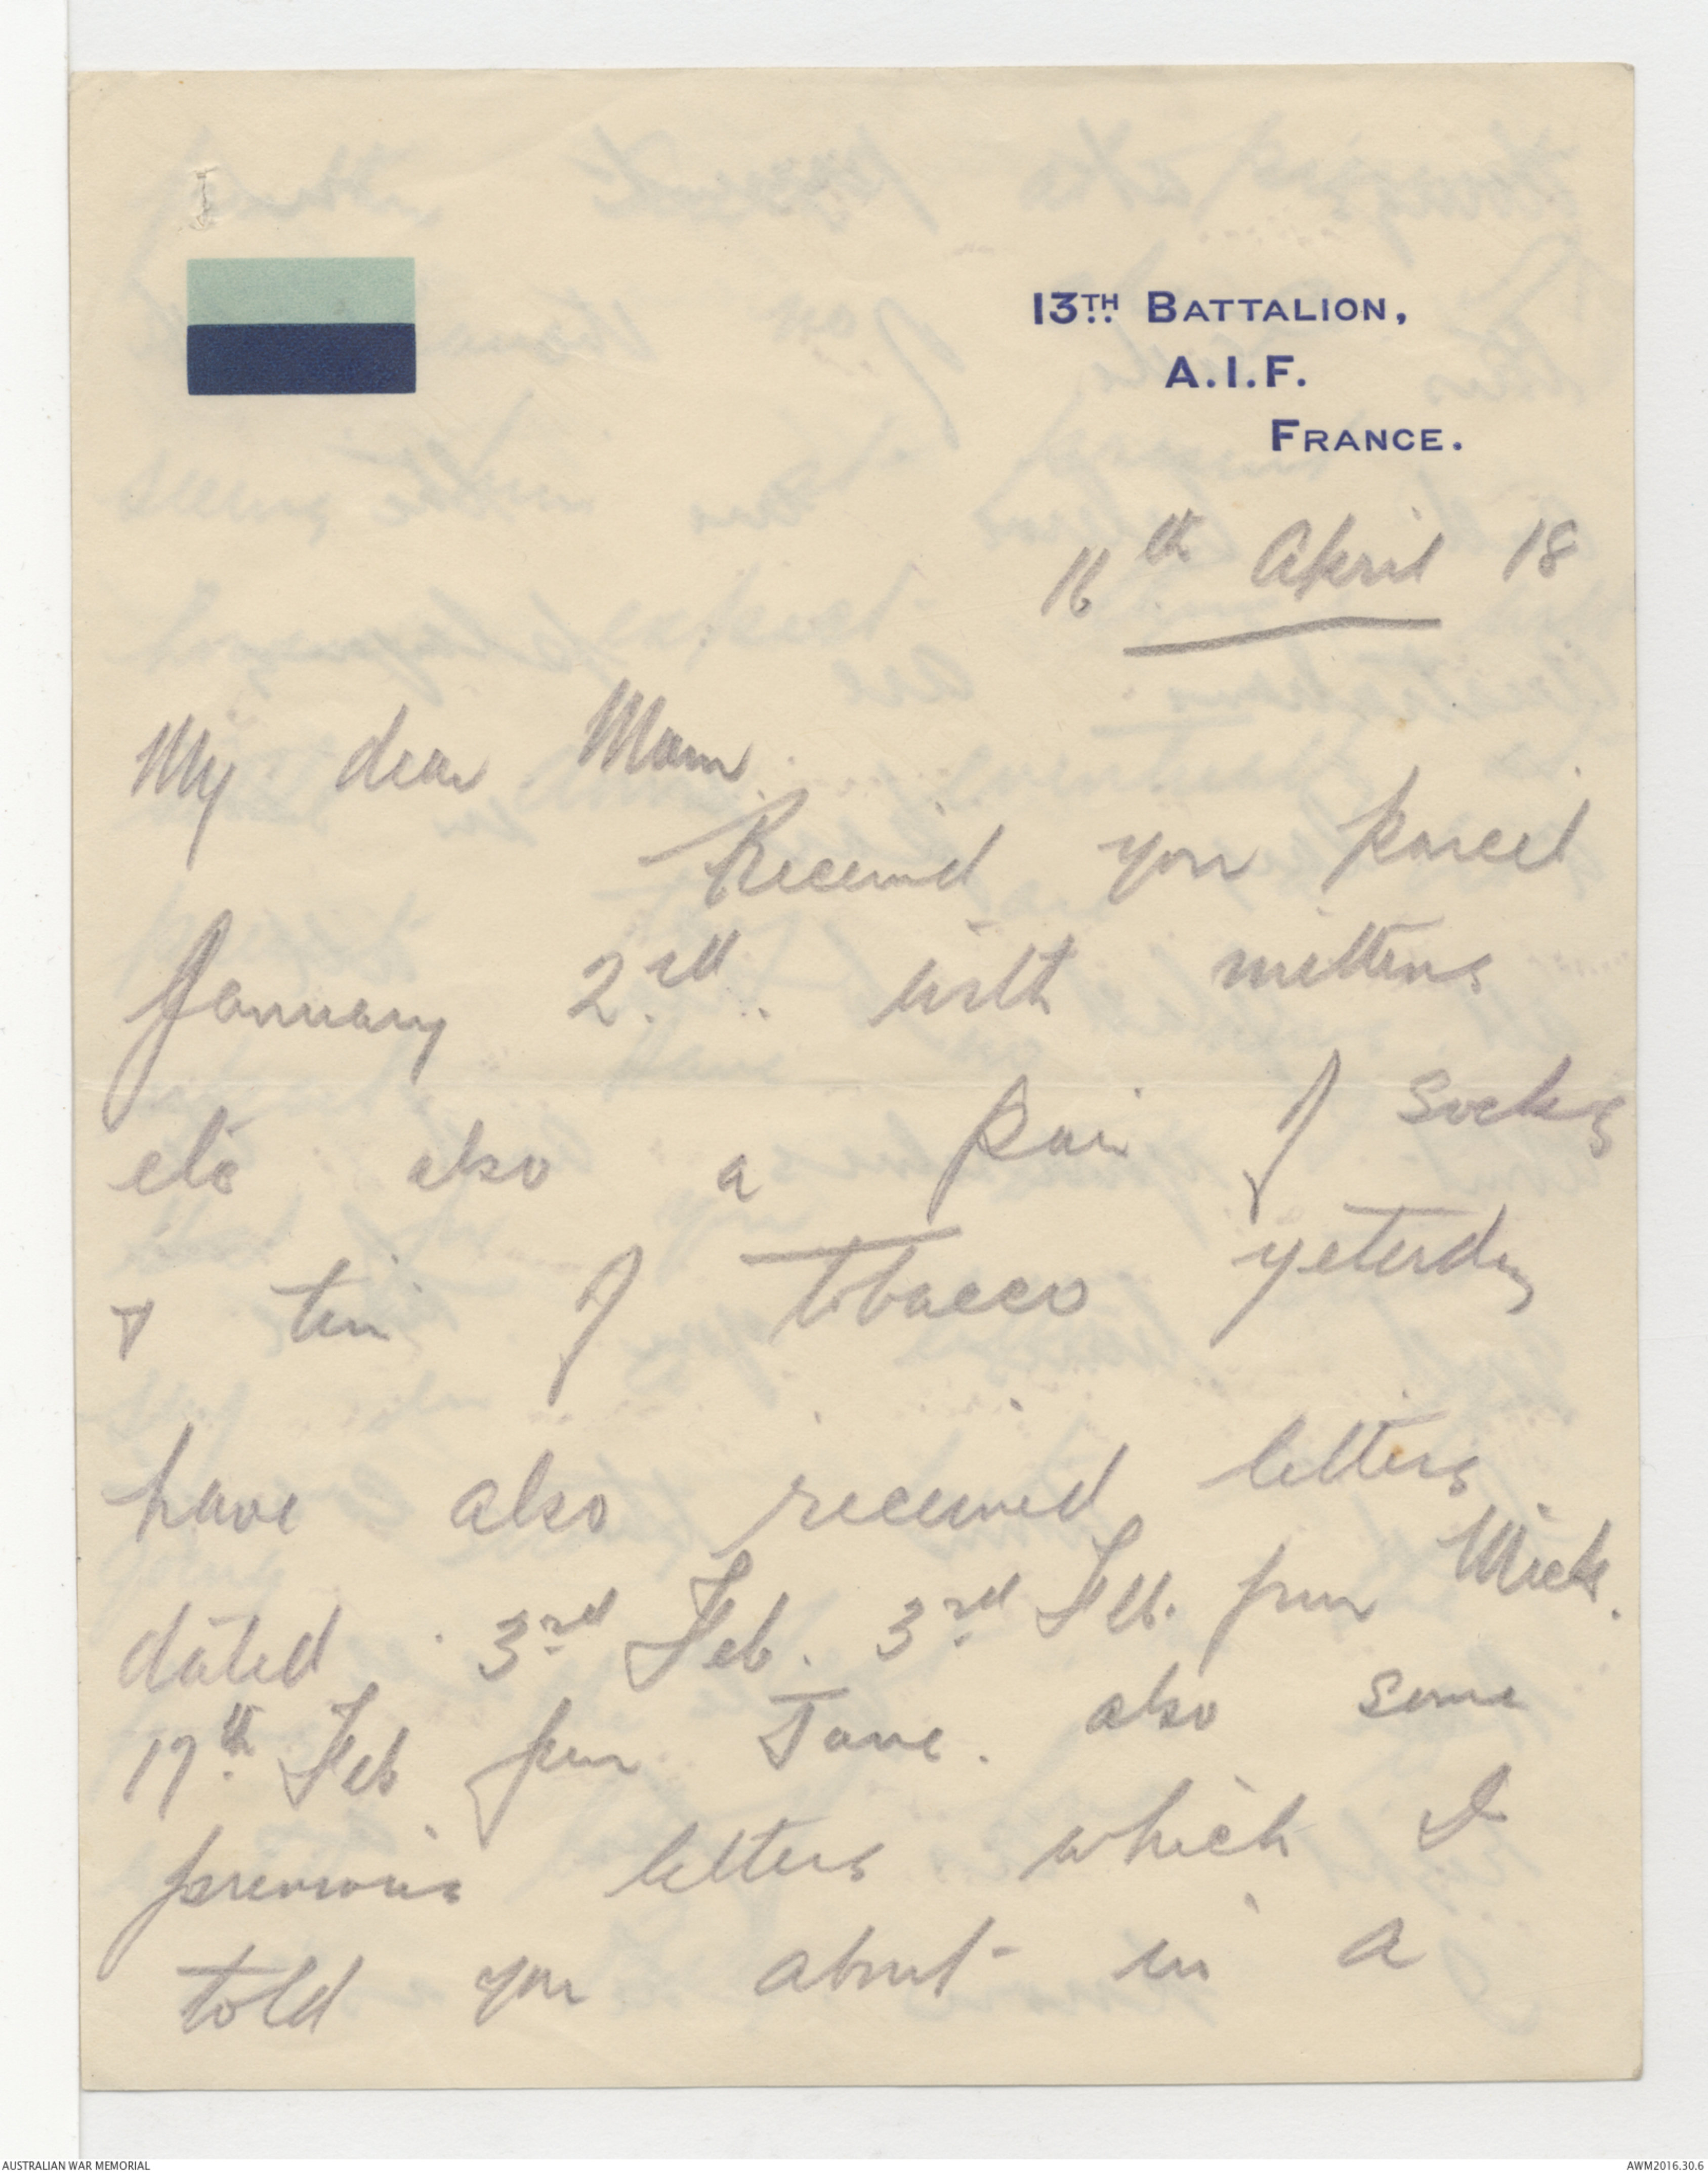 13TH BATTALION,
A.I.F.
FRANCE.
16th April 18
My dear Mum
Received your parcel
January 2nd. with mittens
etc also a pair of socks
& tin of Tobacco yeterday
have also received letters
dated 3rd Feb. 3rd Feb. from Mick.
17th Feb from Jane. also some
previous letters which I
told you about in a
AUSTRALIAN WAR MEMORIAL
AWM2016.30.6